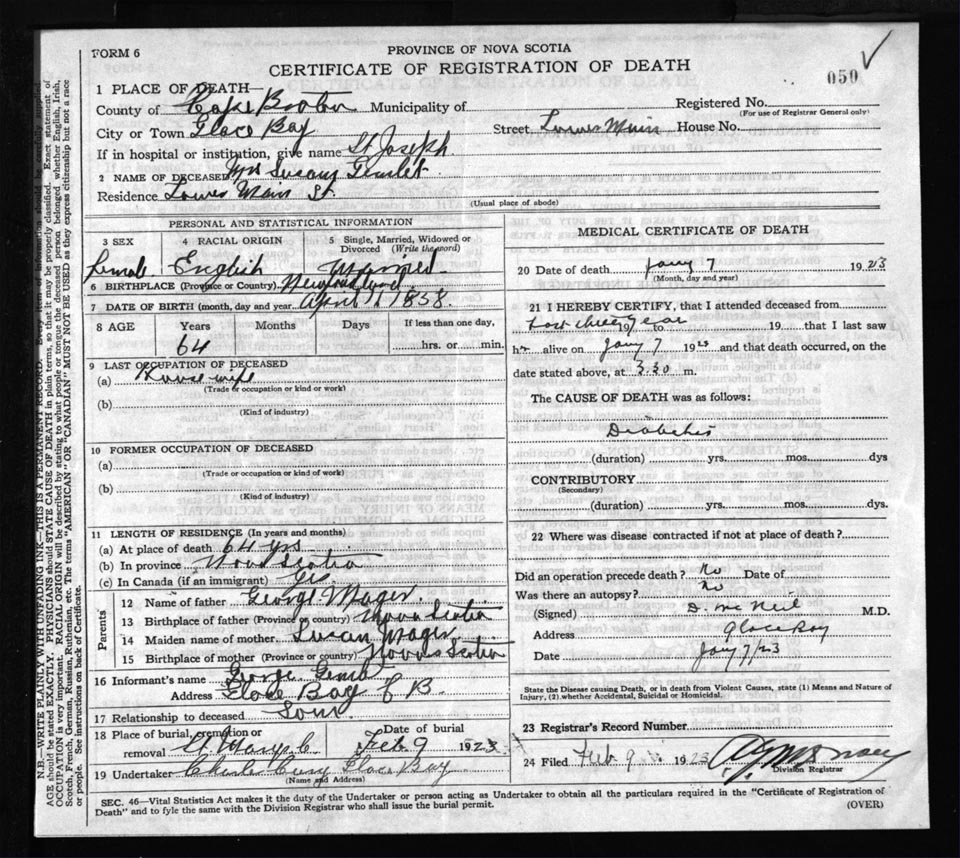 FORM 6
PROVINCE OF NOVA SCOTIA
CERTIFICATE OF REGISTRATION OF DEATH
050
1 PLACE OF DEATH—
County of Cape Breton Municipality of
Registered No.
(For use of Registrar General only)
City or Town Glace Bay
Street, Lower Main House No.
If in hospital or institution, give name St Joseph
2 NAME OF DECEASED Mrs Susany
Residence Lower Main St.
(Usual place of abode)
PERSONAL AND STATISTICAL INFORMATION
3 SEX
4 RACIAL ORIGIN
5 Single, Married, Widowed or Divorced (Write the word)
Female English Married
6 BIRTHPLACE (Province or Country) Newfoundland
7 DATE OF BIRTH (month, day and year) April 1858
8 AGE Years Months Days If less than one day,
64 hrs. or min.
9 LAST OCCUPATION OF DECEASED
(a) House wife
(Trade or occupation or kind or work)
(b)
(Kind of industry)
10 FORMER OCCUPATION OF DECEASED
(a)
(Trade or occupation or kind of work)
(b)
(Kind of industry)
11 LENGTH OF RESIDENCE (In years and months)
(a) At place of death 64 yrs
(b) In province Nova Scotia
(c) In Canada (if an immigrant) yes
Parents
12 Name of father George Mager
13 Birthplace of father (Province or country) Nova Scotia
14 Maiden name of mother Susan Mager
15 Birthplace of mother (Province or country) Nova Scotia
16 Informant's name George
Address Glace Bay C B.
17 Relationship to deceased Son
18 Place of burial, cremation or removal St Marys C
Date of burial Feb 9 1923
19 Undertaker Charles Curry Glace Bay
(Name and Address)
MEDICAL CERTIFICATE OF DEATH
20 Date of death Jany 7 1923
(Month, day and year)
21 I HEREBY CERTIFY, that I attended deceased from
last three year 19 to 19 that I last saw
h alive on Jany 7 1923 and that death occurred, on the
date stated above, at 3.30 m.
The CAUSE OF DEATH was as follows:
Diabetes
(duration) yrs. mos. dys
CONTRIBUTORY
(Secondary)
(duration) yrs. mos. dys.
22 Where was disease contracted if not at place of death?
Did an operation precede death? No Date of
Was there an autopsy? No
(Signed) D. McNeil M.D.
Address Glace Bay
Date Jany 7/23
State the Disease causing Death, or in death from Violent Causes, state (1) Means and Nature of
Injury, (2) whether Accidental, Suicidal or Homicidal.
23 Registrar's Record Number
24 Filed Feb 9 1923
Division Registrar
SEC. 46—Vital Statistics Act makes it the duty of the Undertaker or person acting as Undertaker to obtain all the particulars required in the "Certificate of Registration of
Death" and to fyle the same with the Division Registrar who shall issue the burial permit.
(OVER)
N.B.—WRITE PLAINLY WITH UNFADING INK—THIS IS A PERMANENT RECORD.
AGE should be stated EXACTLY. PHYSICIANS should STATE CAUSE OF DEATH in plain terms, so that it may be properly classified. Exact statement of
OCCUPATION is very important. RACIAL ORIGIN will be described by stating to what people or tongue the deceased person belonged whether English, Irish,
Scotch, French, German, Russian, Ruthenian, etc. The terms "AMERICAN" OR "CANADIAN" MUST NOT BE USED as they express citizenship but not a race
or people. See instructions on back of Certificate.